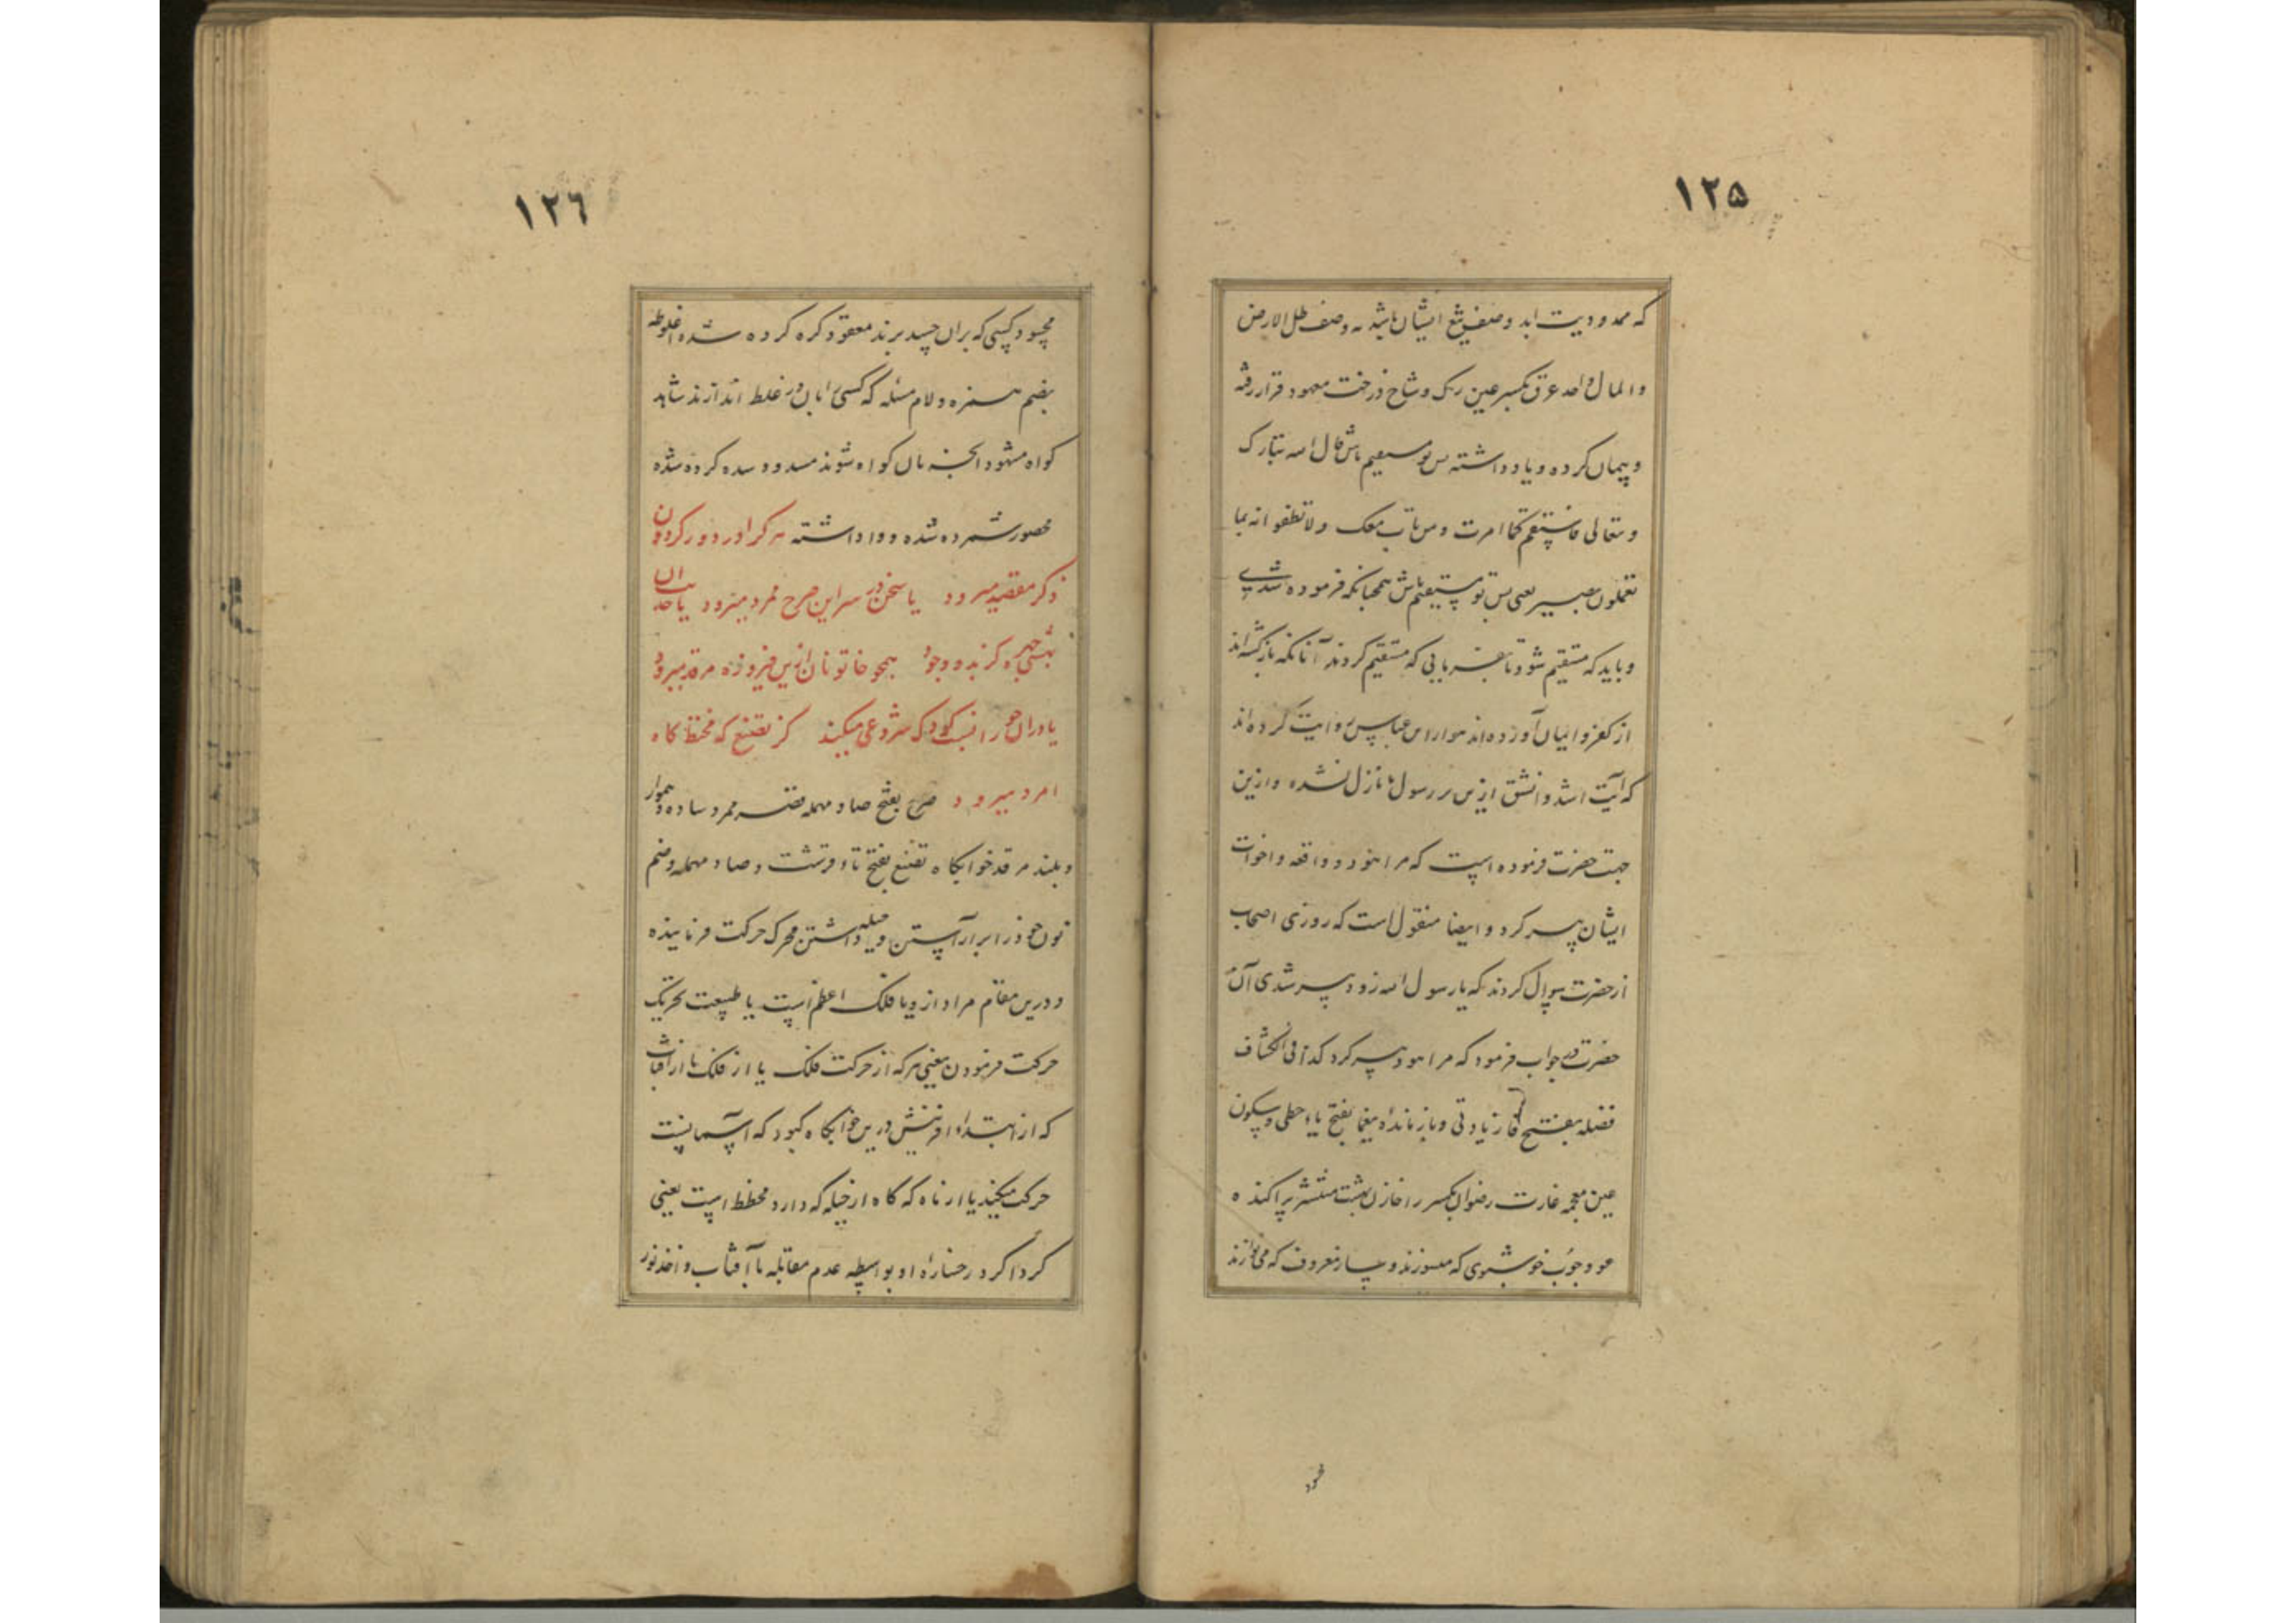 ۱۲۵
که ممدودیت ابد وصف شیع ایشان باشد نه وصف ظل الارض
والمال واحد عرق بکسر عین رک وشاخ درخت معهود قرار رفته
وپیمان کرده ویاد داشته پس تو مستقیم باش قال الله تبارک
وتعالی فاستقم کما امرت ومن تاب معک ولا تطغوا انه بما
تعملون بصیر یعنی پس تو مستقیم باش همچنانکه فرموده شدی
وباید که مستقیم شود تا کسانی که مستقیم کردند آنانکه بازگشته اند
از کفر وایمان آورده اند از ابن عباس روایت کرده اند
که آیتی اشد واشق ازین بر رسول نازل نشده وازین
جهت حضرت فرموده است که مرا هود وواقعه واخوات
ایشان پیر کرد وایضا منقول است که روزی اصحاب
از حضرت سوال کردند که یا رسول الله زود پیر شدی آن
حضرت در جواب فرمود که مرا هود پیر کرد کذا فی الکشاف
فضله بفتح فا زیادتی وبازمانده یغما بفتح یاء حطی وسکون
غین معجمه غارت رضوان بکسر را خازن بهشت منتشر پراکنده
عود چوب خوشبوی که میسوزند وساز معروف که می نوازند
۱۲٦
محسود کسی که بران حسد برند معقود کره کرده شده اغلوطه
بضم همزه ولام مسئله که کسی را بان در غلط اندازند شاهد
کواه مشهود انچه بان کواه شوند مسدود سده کرده شده
محصور شمرده شده وواداشته هر کرا در دور کردون
ذکر مقصد میرود یا سخن در سر این صرح ممرد میرود یا حد
همچو خاتونان ازین فیروزه مرقد میرود
کز تصنع که مخطط کاه
امرد میرود صرح بفتح صاد مهمله قصر ممرد ساده وهموار
وبلند مرقد خوابکاه تصنع بفتح تاء قرشت وصاد مهمله وضم
نون خود را برآراستن وحیله داشتن محرک حرکت فرماینده
ودرین مقام مراد ازو یا فلک اعظم است یا طبیعت تحریک
حرکت فرمودن یعنی هر که از حرکت فلک یا از فلک یا از آفتاب
که از ابتداء آفرینش درین خوابکاه کبود که آسمانست
حرکت میکند یا از ماه که کاه از حیله که دارد مخطط است یعنی
کرداکرد رخساره او بواسطه عدم مقابله با آفتاب واخذ نور